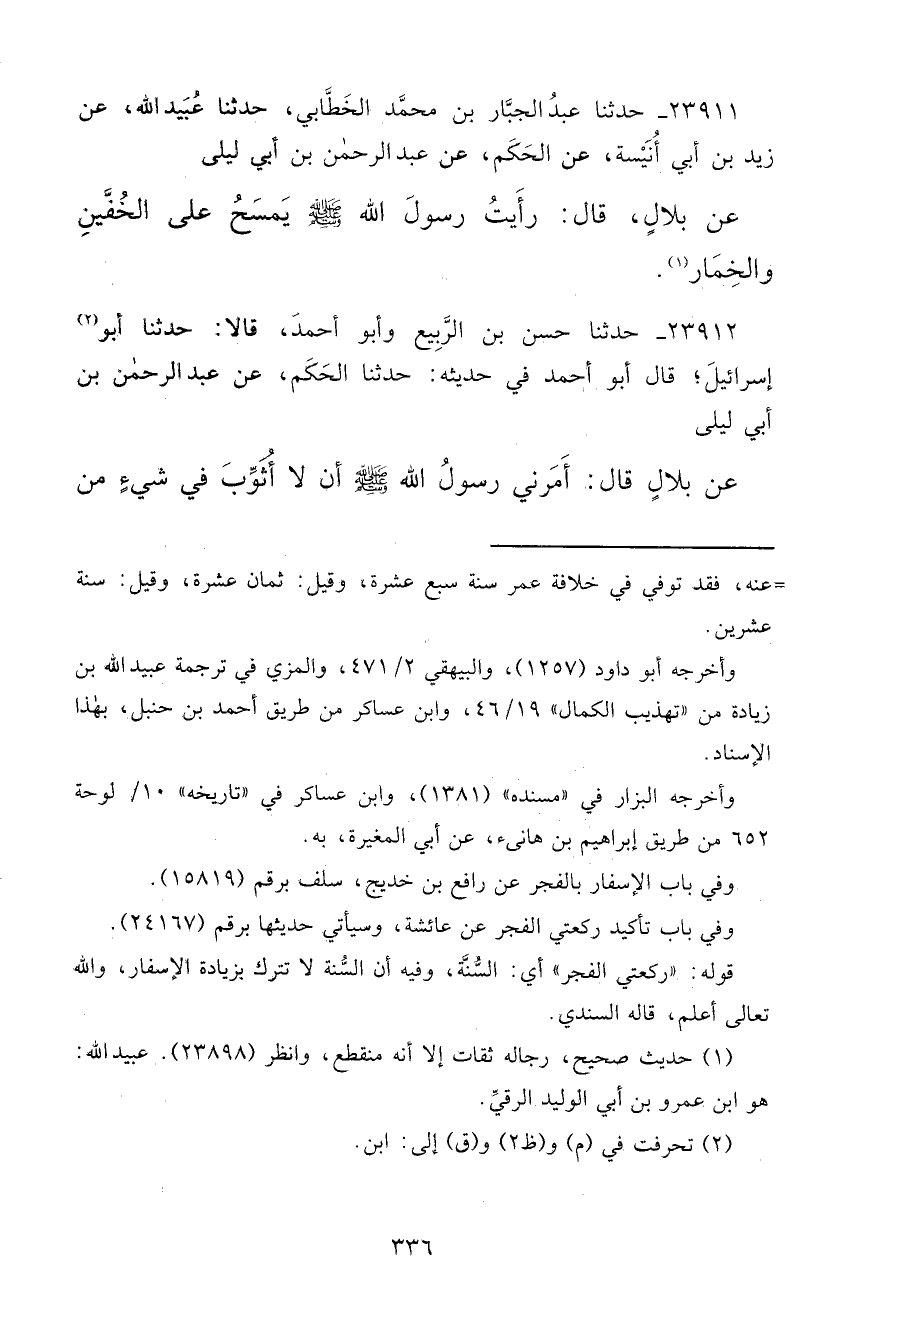 ٢٣٩١١ـ حدثنا عبدُ الجبَّار بن محمَّد الخَطَّابي، حدثنا عُبَيد الله، عن
زيد بن أبي أُنَيْسة، عن الحَكَم، عن عبد الرحمٰن بن أبي ليلى
عن بلالٍ، قال: رأَيتُ رسولَ الله ﷺ يَمسَحُ على الخُفَّينِ
والخِمَار(١).
٢٣٩١٢ـ حدثنا حسن بن الرَّبِيع وأبو أحمدَ، قالا: حدثنا أبو(٢)
إسرائيلَ؛ قال أبو أحمد في حديثه: حدثنا الحَكَم، عن عبد الرحمٰن بن
أبي ليلى
عن بلالٍ قال: أَمَرني رسولُ الله ﷺ أن لا أُثَوِّبَ في شيءٍ من
=عنه، فقد توفي في خلافة عمر سنة سبع عشرة، وقيل: ثمان عشرة، وقيل: سنة
عشرين.
وأخرجه أبو داود (١٢٥٧)، والبيهقي ٢/ ٤٧١، والمزي في ترجمة عبيد الله بن
زيادة من «تهذيب الكمال» ١٩/ ٤٦، وابن عساكر من طريق أحمد بن حنبل، بهٰذا
الإسناد.
وأخرجه البزار في «مسنده» (١٣٨١)، وابن عساكر في «تاريخه» ١٠/ لوحة
٦٥٢ من طريق إبراهيم بن هانىء، عن أبي المغيرة، به.
وفي باب الإسفار بالفجر عن رافع بن خديج، سلف برقم (١٥٨١٩).
وفي باب تأكيد ركعتي الفجر عن عائشة، وسيأتي حديثها برقم (٢٤١٦٧).
قوله: «ركعتي الفجر» أي: السُّنَّة، وفيه أن السُّنة لا تترك بزيادة الإسفار، والله
تعالى أعلم، قاله السندي.
(١) حديث صحيح، رجاله ثقات إلا أنه منقطع، وانظر (٢٣٨٩٨). عبيد الله:
هو ابن عمرو بن أبي الوليد الرقيِّ.
(٢) تحرفت في (م) و(ظ٢) و(ق) إلى: ابن.
٣٣٦